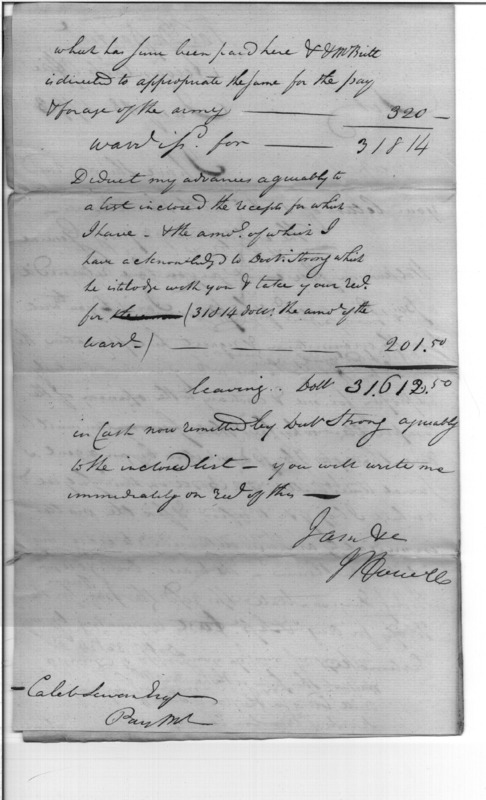 what has since been paid here & Mr Britt
is directed to appropriate the same for the pay
& forage of the army — 320 —
warrt issd. for — 31814
Deduct my advances agreeably to
a list inclosed the receipts for which
I have - & the amot. of which I
have acknowledged to Doctr. Strong which
he is to lodge with you & take your rect.
for (31814 dolls. the amot of the
warrt-) — 201.50
leaving .. Doll 31.612.50
in Cash now remitted by Doct Strong agreeably
to the inclosed list — you will write me
immediately on rect of this —
I am &c
J Howell
Caleb Swan Esqr
Pay Mr